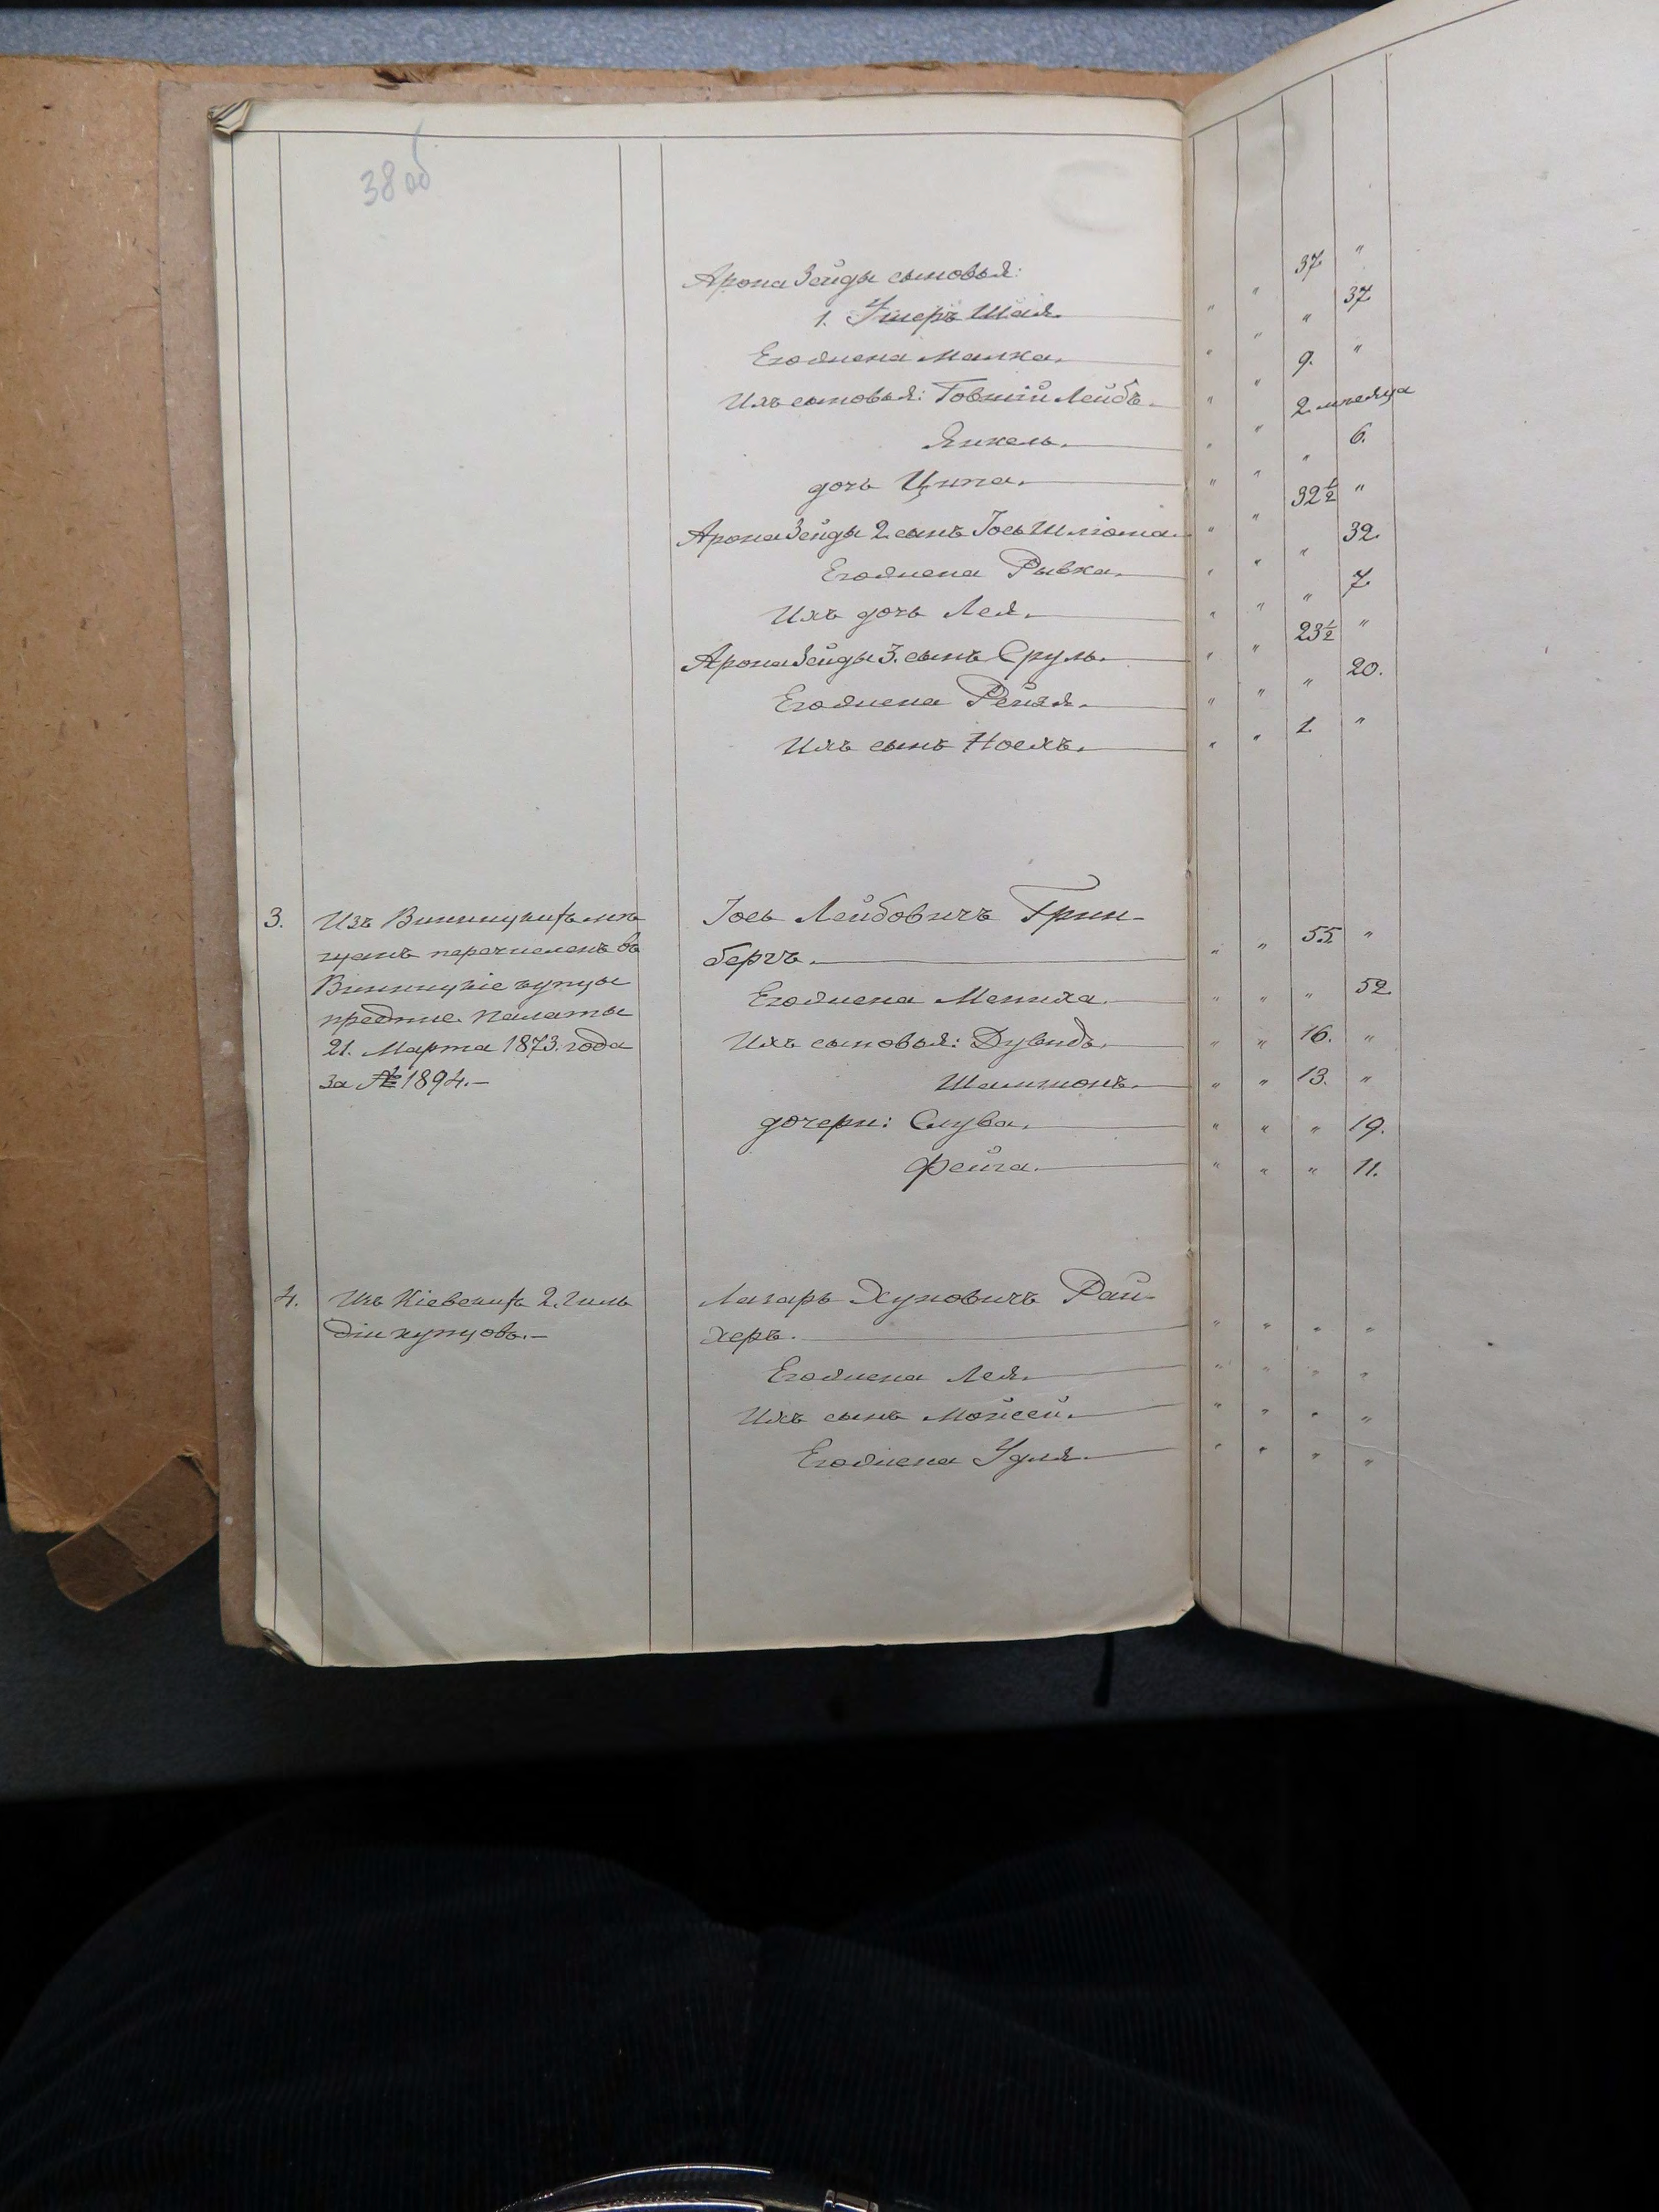 38 об
Арона Зейды сыновья:
37 "
1. Ушеръ Шая. " "
Его жена Малка. " " " 37
Ихъ сыновья: Товшій Лейбъ. " " 9. "
Янкель. " " 2 мѣсяца
дочь Ципа. " " " 6.
Арона Зейды 2. сынъ Іось Шліома. " " 32 1/2 "
Его жена Рывка. " " " 32.
Ихъ дочь Лея. " " " 7.
Арона Зейды 3. сынъ Сруль. " " 23 1/2 "
Его жена Рейзя. " " " 20.
Ихъ сынъ Ноехъ. " " 1. "
3. Изъ Винницкихъ мѣ Іось Лейбовичъ Грин-
щанъ перечисленъ въ бергъ. " " 55 "
Винницкіе купцы Его жена Мениха. " " " 52.
предпис. Палаты
21. Марта 1873. года Ихъ сыновья: Дувидъ. " " 16. "
за № 1894.— Шлимонъ. " " 13. "
дочери: Слува. " " " 19.
Фейга. " " " 11.
4. Изъ Кіевскихъ 2. гиль Лазарь Хуновичъ Рай-
діи купцовъ.— херъ. " " " "
Его жена Лея. " " " "
Ихъ сынъ Мойсей. " " " "
Его жена Удля. " " " "